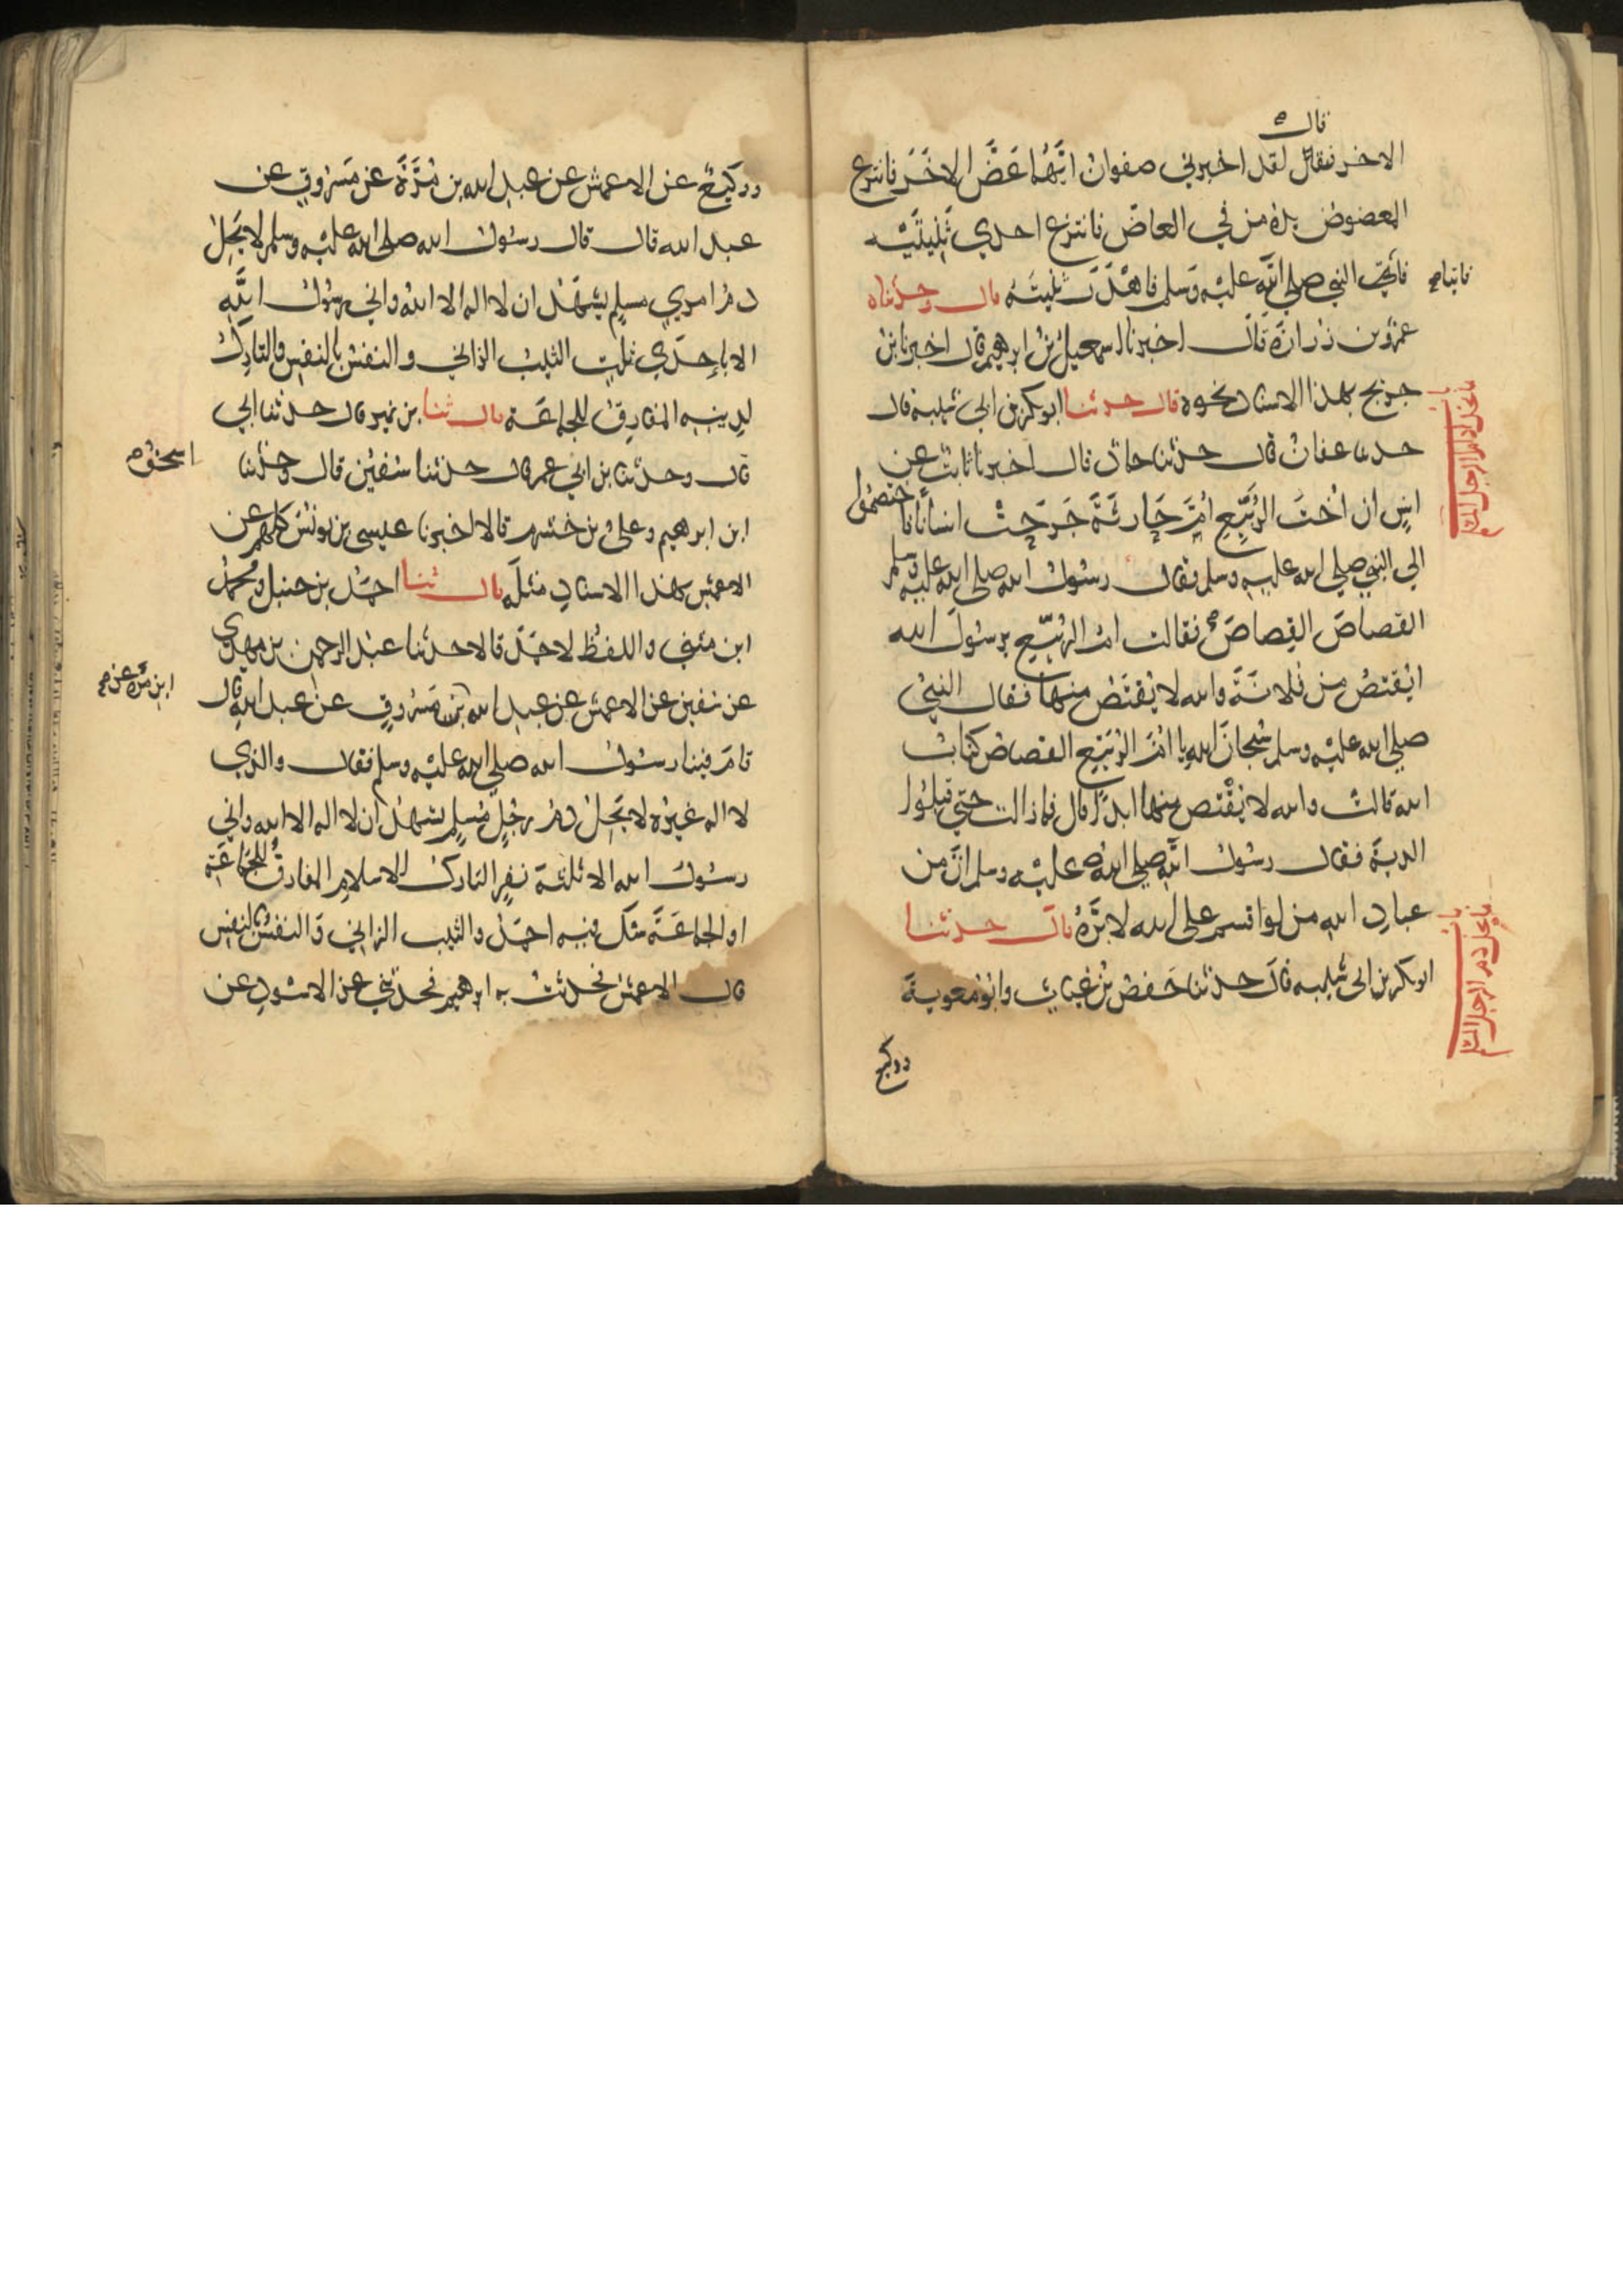 قال
الاخر فقال لقد اخبرني صفوان ايُّهُما عَضَّ الاخَرَ فانتزع
المعضوض يده من في العاضّ فانتزع احدي ثنيتيه
فأتي النبي صلي الله عليه وسلم فاهدَرَ ثنيتَه قال وحدثناه
فاتيا
عمرُو بن زرارة قال اخبرنا اسمعيل بن ابرهيم قال اخبرنا بن
جريج بهذا الاسناد نحوه قال حدثنا ابو بكر بن ابي شيبة قال
حدثنا عفان قال حدثنا حماد قال اخبرنا ثابت عن
انسٍ ان اُختَ الرُبَيِّعِ امَّ حَارِثَةَ جَرَحَتْ انسانا فاختصموا
الي النبي صلي الله عليه وسلم فقال رسول الله صلي الله عليه وسلم
القصاصَ القِصاصَ فقالت ام الرُبَيِّع يرسولَ الله
ايُقتصُ من فلانةَ والله لا يُقتَصُ منها فقال النبيُ
صلي الله عليه وسلم سُبحانَ الله يا امَّ الرُبَيِّع القصاصُ كتابُ
الله قالتْ والله لا يُقْتص منها ابدًا قال فما زالت حتي قبلُوا
الدية فقال رسول الله صلي الله عليه وسلم انَّ من
عبادِ الله من لو اقسم علي الله لابَرَّهُ قال حدثنا
ابو بكر بن ابي شيبه قال حدثنا حَفصُ بنُ غِياثٍ وابُو معوية
ووكيع
ووكيعٌ عن الاعمش عن عبد الله بن مُرَّةَ عن مَسْروقٍ عن
عبد الله قال قال رسول الله صلي الله عليه وسلم لا يَحِلُ
دمُ امري مسلمٍ يشهَدُ ان لا اله الا اللهُ واني رسُولُ اللهِ
الا باِحدَي ثلث الثيبُ الزاني والنفسُ بالنفسِ والتارِكُ
لدِينِه المفارِقُ للجماعَة قال ثنا بن نمير قال حدثنا ابي
قال وحدثنا بن ابي عمر قال حدثنا سُفين قال وحدثنا
اسحق
ابن ابرهيم وعليُ بن خشرم قالا اخبرنا عيسي بن يونُسَ كلهم عن
الاعمش بهذا الاسنادِ مثلَه قال ثنا احمدُ بن حنبل ومحمدُ
ابن مثني واللفظُ لاحمَدَ قالا حدثنا عبدُ الرحمن بن مهدي
عن سفين عن الاعمش عن عبد الله بن مَسْروقٍ عن عبد الله قال
ابن مرة عن
قامَ فينا رسولُ الله صلي الله عليه وسلم فقال والذي
لا اله غيرُه لا يَحِلُ دمُ رجُلٍ مُسلمٍ يشهدُ ان لا اله الا الله واني
رسولُ الله الا ثلثةَ نفرٍ التاركُ للاسلامِ المفارقُ للجماعَةِ
او الجماعَةَ شكَ فيه احمدُ والثيب الزاني وَالنفسُ بالنفسِ
قال الاعمشُ فحدثتُ به ابرهيمَ فحدثني عن الاسْودِ عن